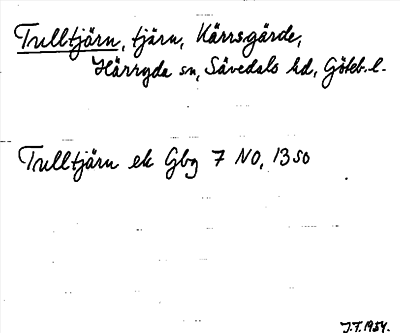 Tulltjärn, tjärn, Kärrsgärde,
Härryda sn, Sävedals hd, Göteb. l.
Tulltjärn ek Gbg 7 NO, 1350
J.T. 1954.